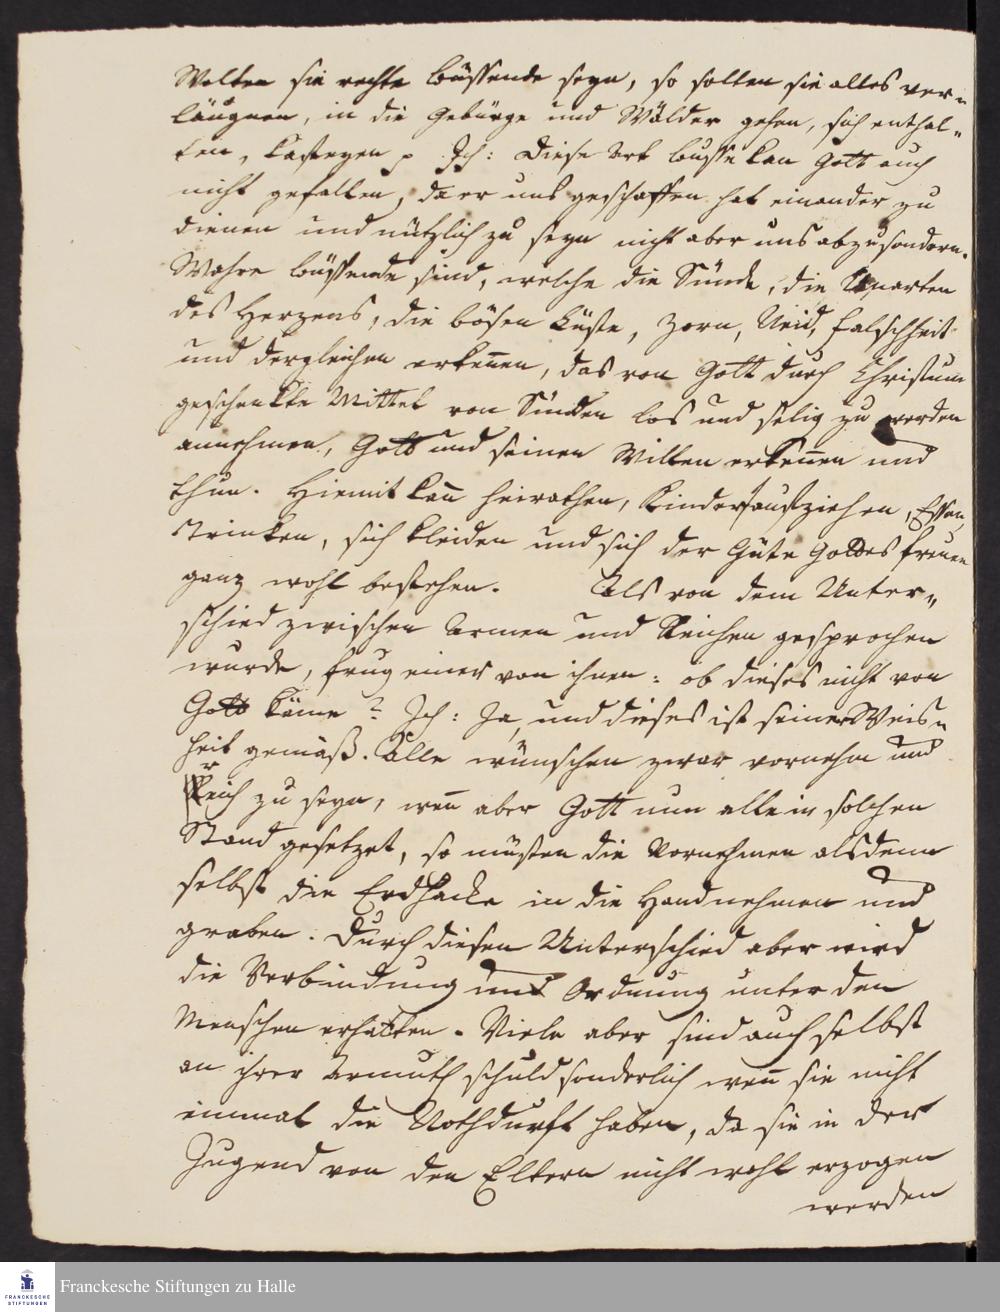 Wolten sie rechte büssende seyn, so solten sie alles ver-
läugnen, in die Gebürge und Wälder gehen, sich enthal-
ten, kasteyen p Ich: Diese Art busse kan Gott auch
nicht gefallen, da er uns geschaffen hat einander zu
dienen und nützlich zu seyn nicht aber uns abzusondern.
Wahre büssende sind, welche die Sünde, die Unarten
des Herzens, die bösen Lüste, Zorn, Neid, Falschheit
und dergleichen erkennen, das von Gott durch Christum
geschenkte Mittel von Sünden los und selig zu werden
annehmen, Gott und seinen Willen erkennen und
thun. Hiemit kan heirathen, Kinder aufziehen, Essen,
Trinken, sich kleiden und sich der Güte Gottes freuen
ganz wohl bestehen. Als von dem Unter-
schied zwischen Armen und Reichen gesprochen
wurde, frug einer von ihnen: ob dieses nicht von
Gott käme? Ich: Ja, und dieses ist seiner Weis-
heit gemäß. Alle wünschen zwar vornehm und
reich zu seyn, wen aber Gott nun alle in solchen
Stand gesetzet, so müsten die Vornehmen alsdenn
selbst die Erdhacke in die Hand nehmen und
graben. Durch diesen Unterschied aber wird
die Verbindung und Ordnung unter den
Menschen erhalten. Viele aber sind auch selbst
an ihrer Armuth schuld sonderlich wen sie nicht
einmal die Nothdurft haben, da sie in der
Jugend von den Eltern nicht wohl erzogen
werden
FRANCKESCHE
STIFTUNGEN
Franckesche Stiftungen zu Halle